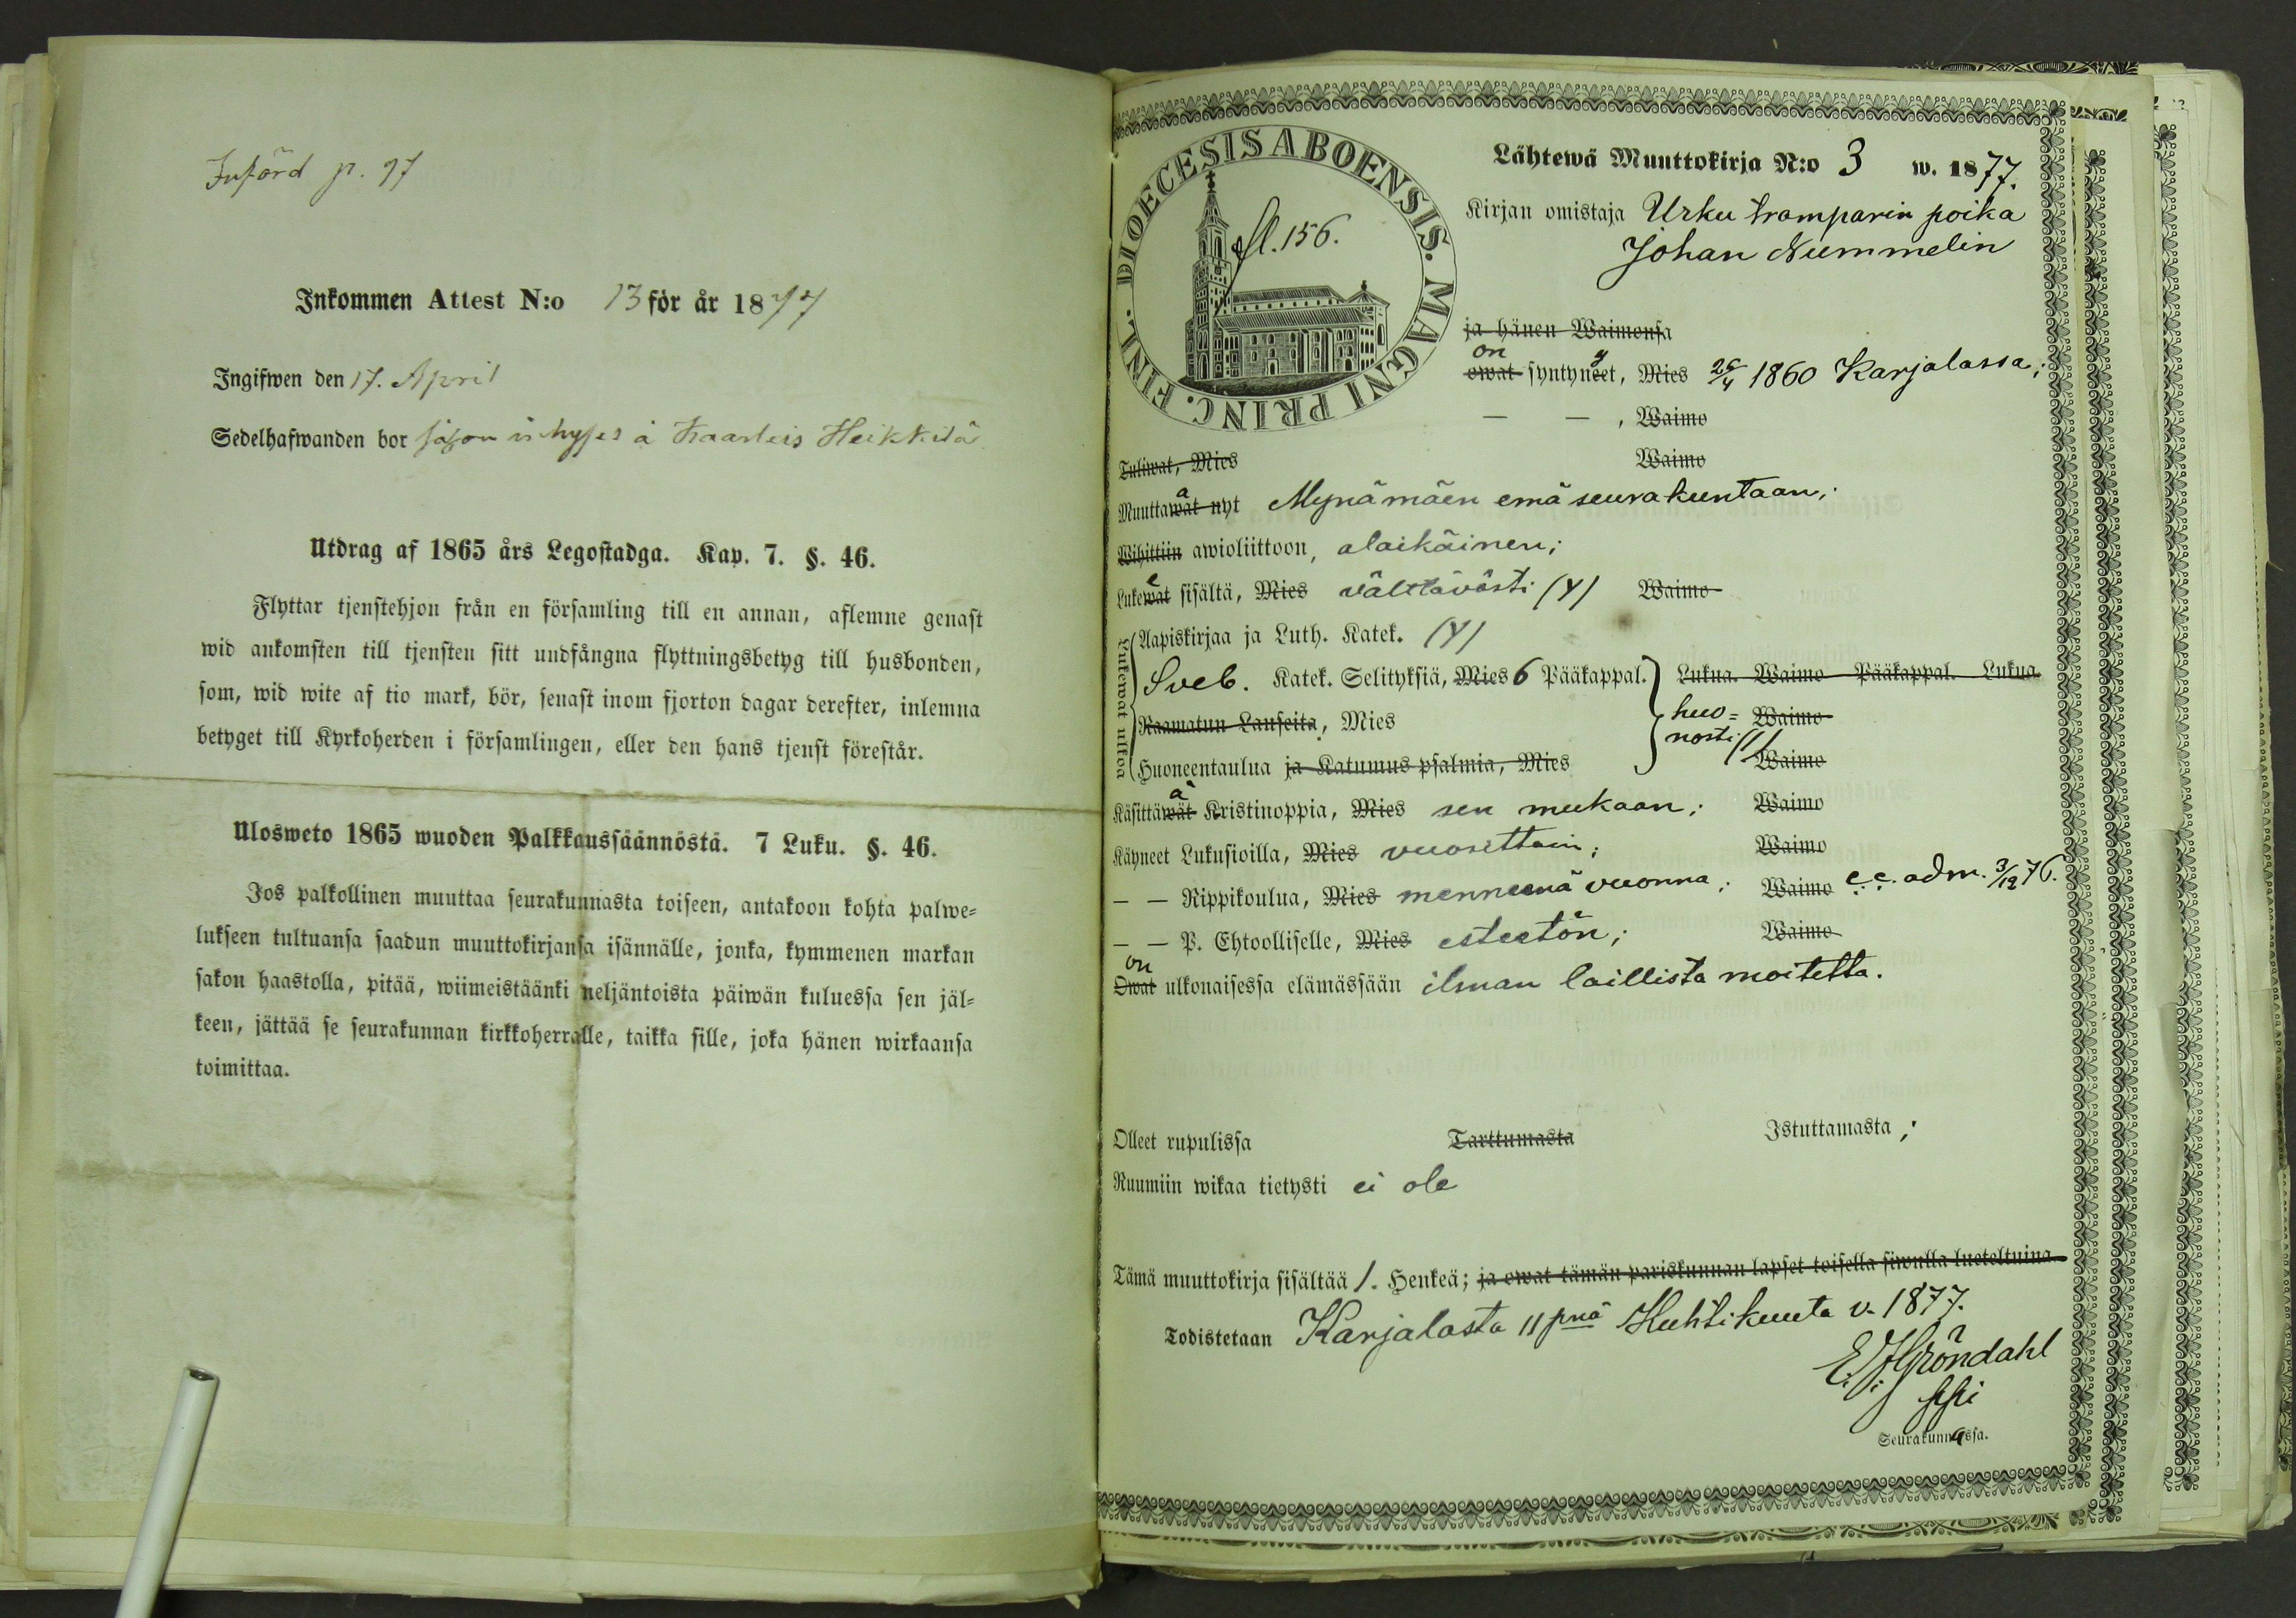 Införd p. 97
Inkommen Attest N:o 13 för år 1877
Ingifwen den 17. April
Sedelhafwanden bor såson inhyses å Kaarleis Heikkilä
Utdrag af 1865 års Legostadga. Kap. 7. §. 46.
Flyttar tjenstehjon från en församling till en annan, aflemne genast
wid ankomsten till tjensten sitt undfångna flyttningsbetyg till husbonden,
som, wid wite af tio mark, bör, senast inom fjorton dagar derefter, inlemna
betyget till Kyrkoherden i församlingen, eller den hans tjenst förestår.
Ulosweto 1865 wuoden Palkkaussäännöstä. 7 Luku. §. 46.
Jos palkollinen muuttaa seurakunnasta toiseen, antakoon kohta palwe=
lukseen tultuansa saadun muuttokirjansa isännälle, jonka, kymmenen markan
sakon haastolla, pitää, wiimeistäänki neljäntoista päiwän kuluessa sen jäl=
keen, jättää se seurakunnan kirkkoherralle, taikka sille, joka hänen wirkaansa
toimittaa.
DIOECESIS ABOENSIS. MAGNI PRINC. FINL.
fl. 156.
Lähtewä Muuttokirja N:o 3 w. 1877.
Kirjan omistaja Urku tramparin poika
Johan Nummelin
ja hänen Waimonsa
on
owat syntyneet, Mies 26/4 1860 Karjalassa;
— — , Waimo
Tuliwat, Mies Waimo
Muuttawat nyt Mynämäen emäseurakuntaan;
Wihittiin awioliittoon, alaikäinen;
Lukewat sisältä, Mies välttävästi (y) Waimo
Lukewat ulkoa
Aapiskirjaa ja Luth. Katek. (y)
Sveb. Katek. Selityksiä, Mies 6 Pääkappal. Lukua. Waimo Pääkappal. Lukua
Raamatun Lauseita, Mies huo= Waimo
nosti (/)
Huoneentaulua ja Katumus psalmia, Mies Waimo
Käsittäwät Kristinoppia, Mies sen mukaan; Waimo
Käyneet Lukusioilla, Mies vuosittain; Waimo
— — Rippikoulua, Mies menneenä vuonna; Waimo c. c. adm. 3/12 76.
— — P. Ehtoolliselle, Mies esteetön; Waimo
on
Owat ulkonaisessa elämässään ilman laillista moitetta.
Olleet rupulissa Tarttumasta Istuttamasta;
Ruumiin wikaa tietysti ei ole
Tämä muuttokirja sisältää 1. Henkeä; ja owat tämän pariskunnan lapset toisella siwulla lueteltuina
Todistetaan Karjalasta 11 pnä Huhtikuuta v. 1877.
E. J. Gröndahl
Seurakunnassa.